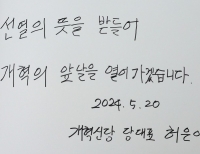 선열의 뜻을 받들어
개혁의 앞날을 열어가겠습니다.
2024. 5. 20
개혁신당 당대표 허은아